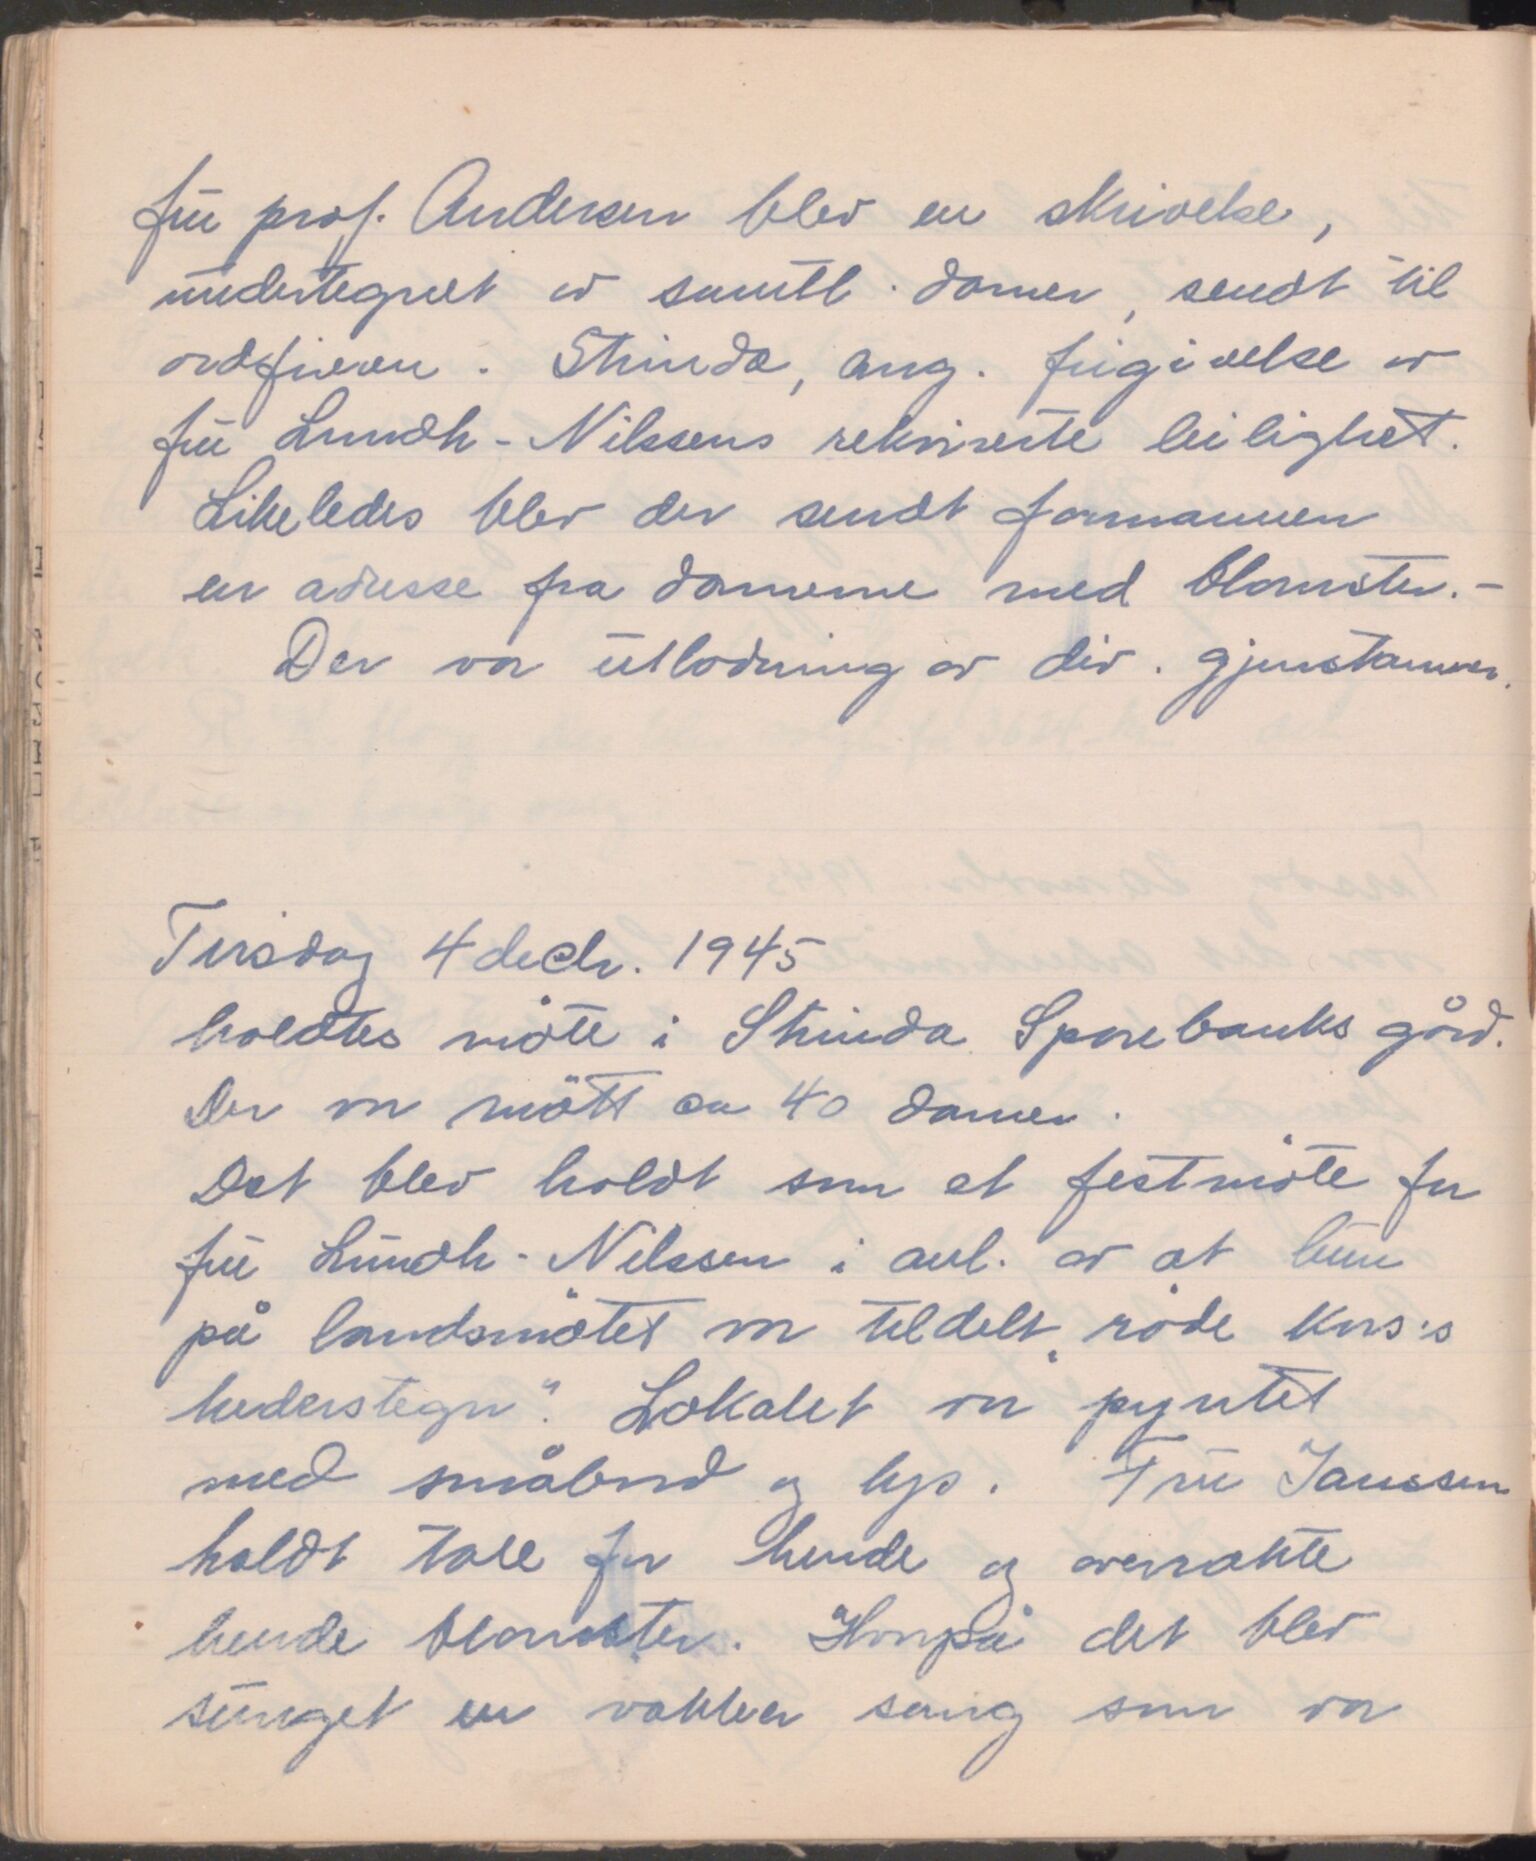 fru prof. Andersen blev en skrivelse,
undertegnet av samtl. damer, sendt til
ordføreren. Strinda, ang. frigivelse av
fru Lundh-Nilssens rekvirerte leilighet.
Likeledes blev der sendt formannen
en adresse fra damerne med blomster. -
Der var utlodning av div. gjenstanner.
Tirsdag 4 decbr. 1945
holdtes møte i Strinda Sparebanks gård.
Der var møtt ca 40 damer.
Det blev holdt som et festmøte for
fru Lundh-Nilssen i anl. av at hun
på landsmøtet var tildelt „røde kors's
hederstegn". Lokalet var pyntet
med småbord og lys. Fru Janssen
holdt tale for hende og overrakte
hende blomster. Hvorpå det blev
sunget en vakker sang som var